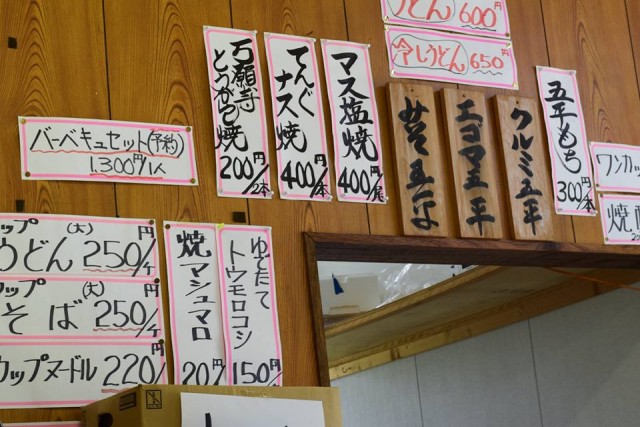 うどん 600円
冷しうどん 650円
万願寺
とうがらし焼
200円/2本
てんぐ
ナス焼
400円/本
マス塩焼
400円/尾
みそ五平
エゴマ五平
クルミ五平
五平もち
300円/本
ワンカッ
焼
バーベキュセット(予約)
1.300円/1人
ップ (大)
うどん 250円/ケ
ップ (大)
そば 250円/ケ
カップヌードル 220円/
焼マシュマロ
20円/
ゆでたて
トウモロコシ
150円/